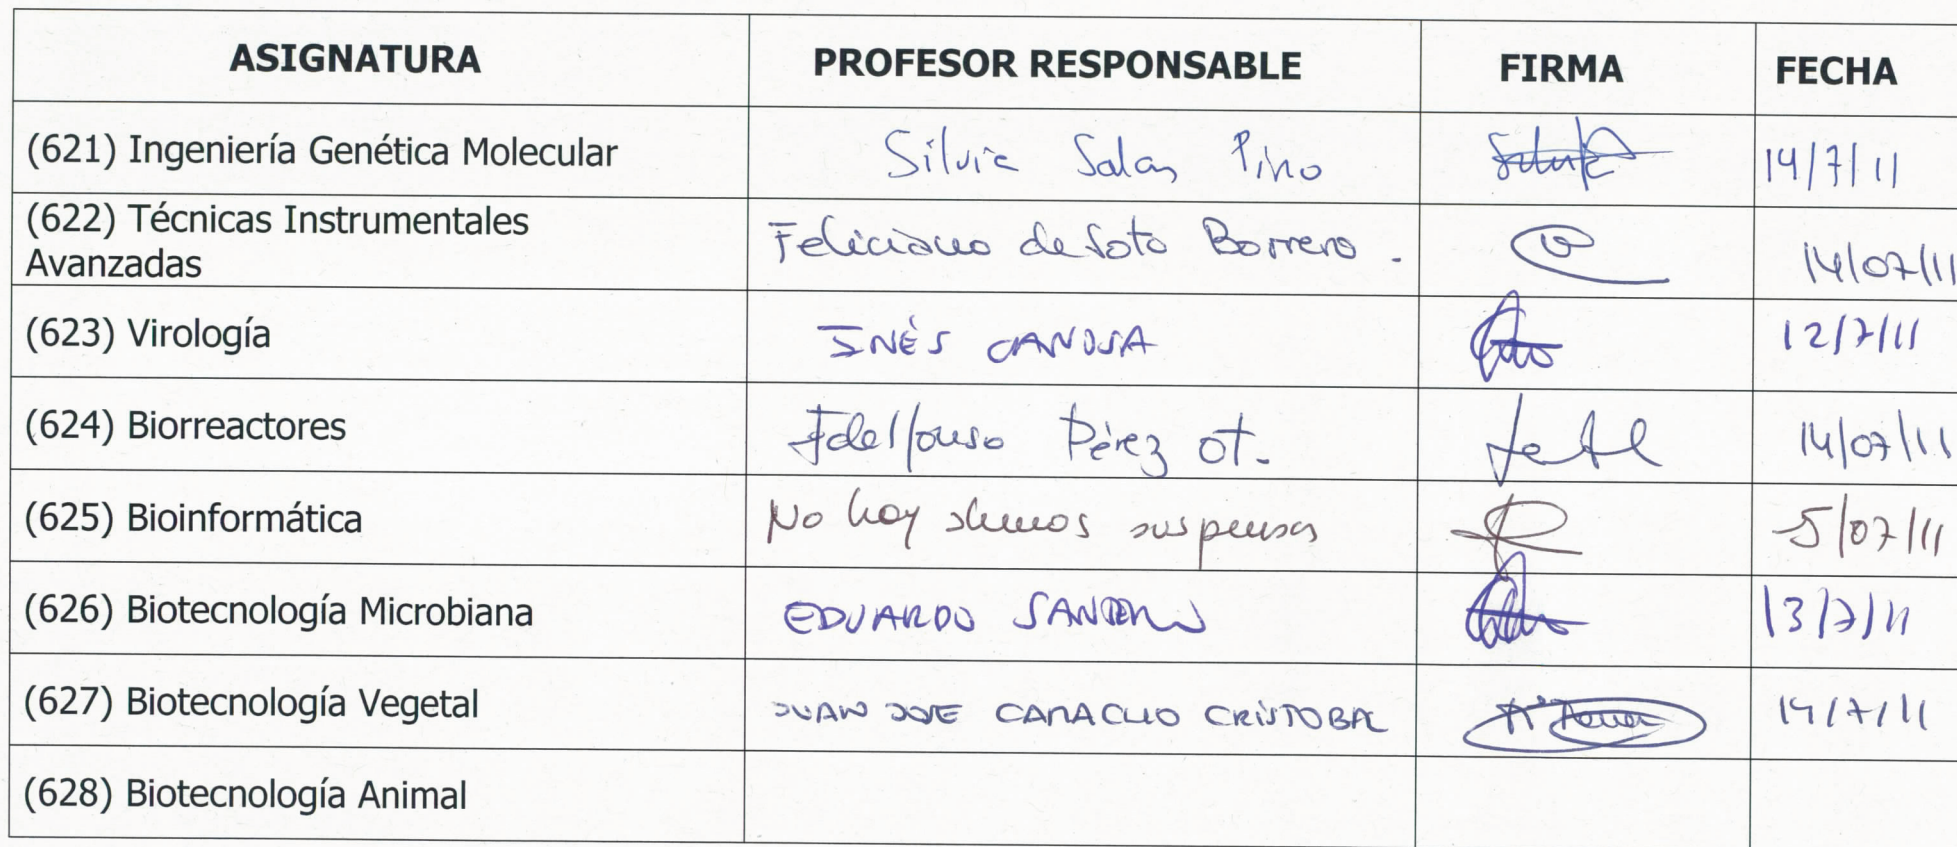 ASIGNATURA PROFESOR RESPONSABLE FIRMA FECHA
(621) Ingeniería Genética Molecular Silvia Salas Pino 14/7/11
(622) Técnicas Instrumentales
Avanzadas Feliciano de Soto Borrero. 14/07/11
(623) Virología INÉS CANOSA 12/7/11
(624) Biorreactores Ildelfonso Pérez OT. 14/07/11
(625) Bioinformática No hay alumnos suspensos 5/07/11
(626) Biotecnología Microbiana EDUARDO SANTERO 13/7/11
(627) Biotecnología Vegetal JUAN JOSE CAMACHO CRISTOBAL 14/7/11
(628) Biotecnología Animal